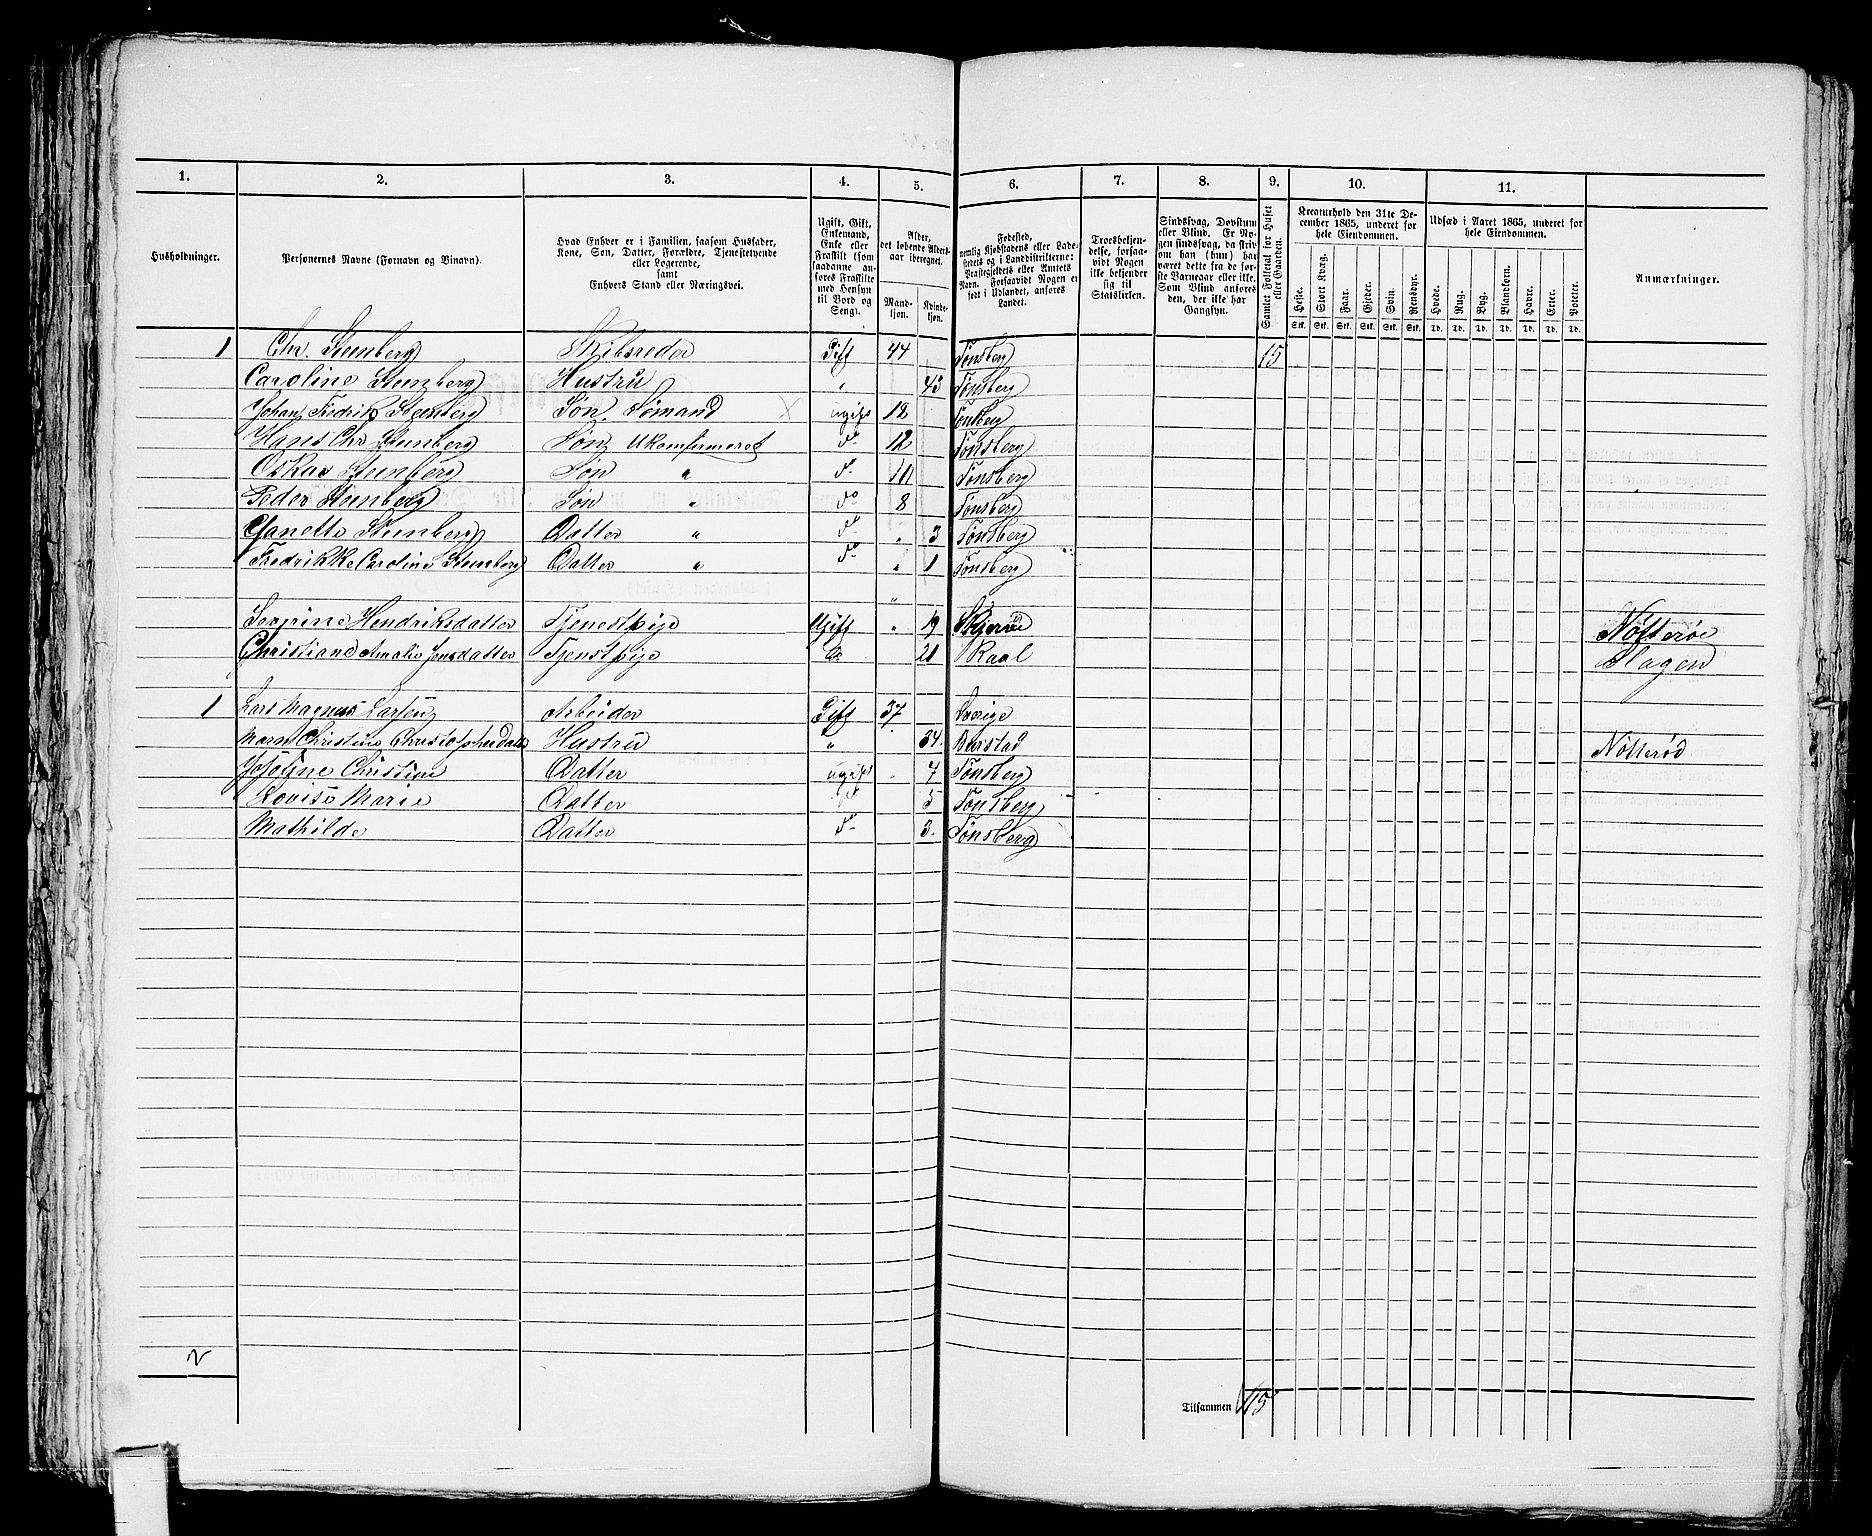 1. 2. 3. 4. 5. 6. 7. 8. 9. 10. 11.
Husholdninger.
Personernes Navne (Fornavn og Binavn).
Hvad Enhver er i Familien, saasom Husfader,
Kone, Søn, Datter, Forældre, Tjenestetyende
eller Logerende,
samt
Enhvers Stand eller Næringsvei.
Ugift, Gift,
Enkemand,
Enke eller
Fraskilt (som
saadanne an-
føres Fraskilte
med Hensyn
til Bord og
Seng).
Alder,
det løbende Alders-
aar iberegnet.
Mand-
kjøn.
Kvinde-
kjøn.
Fødested,
nemlig Kjøbstadens eller Lade-
stedets og i Landdistrikterne:
Præstegjeldets eller Amtets
Navn. Forsaavidt Nogen er
født i Udlandet, anføres
Landet.
Troesbekjen-
delse, forsaa-
vidt Nogen
ikke bekjender
sig til
Statskirken.
Sindssvag, Døvstum
eller Blind. Er No-
gen sindssvag, da skriv
om han (hun) har
været dette fra de før-
ste Barneaar eller ikke.
Som Blind anføres
den, der ikke har
Gangsyn.
Samlet Folketal for Huset
eller Gaarden.
Kreaturhold den 31te De-
cember 1865, underet for
hele Eiendommen.
Heste. Stort Kvæg. Faar. Gjeder. Svin. Rensdyr.
Stk. Stk. Stk. Stk. Stk. Stk.
Udsæd i Aaret 1865, underet for
hele Eiendommen.
Hvede. Rug. Byg. Blandkorn. Havre. Erter. Poteter.
Td. Td. Td. Td. Td. Td. Td.
Anmærkninger.
1 Chr. Steenberg Skibsreder Gift 44 Tønsberg 15
Caroline Steenberg Hustru " 43 Tønsberg
Johan Fredrik Steenberg Søn, Sømand ugift 18 Tønsberg
Hans Chr Steenberg Søn Ukonfirmeret do 12 Tønsberg
Oskar Steenberg Søn " do 10 Tønsberg
Peder Steenberg Søn " do 8 Tønsberg
Janette Steenberg Datter " do " 3 Tønsberg
Fredrikke Caroline Steenberg Datter " do " 1 Tønsberg
"
Severine Hendriksdatter Tjenestpige Ugift " 19 Nøtterøe
Christiane Amalie Jensdatter Tjenstpige do 21 Slagen
1 Lars Magnus Larsen Arbeider Gift 37 Sverige
Maren Christine Christophersdatt Hustru " 34 Nøtterød
Josefine Christine Datter ugift 7 Tønsberg
Lovise Marie Datter do 5 Tønsberg
Mathilde Datter do 3 Tønsberg
2
Tilsammen 15